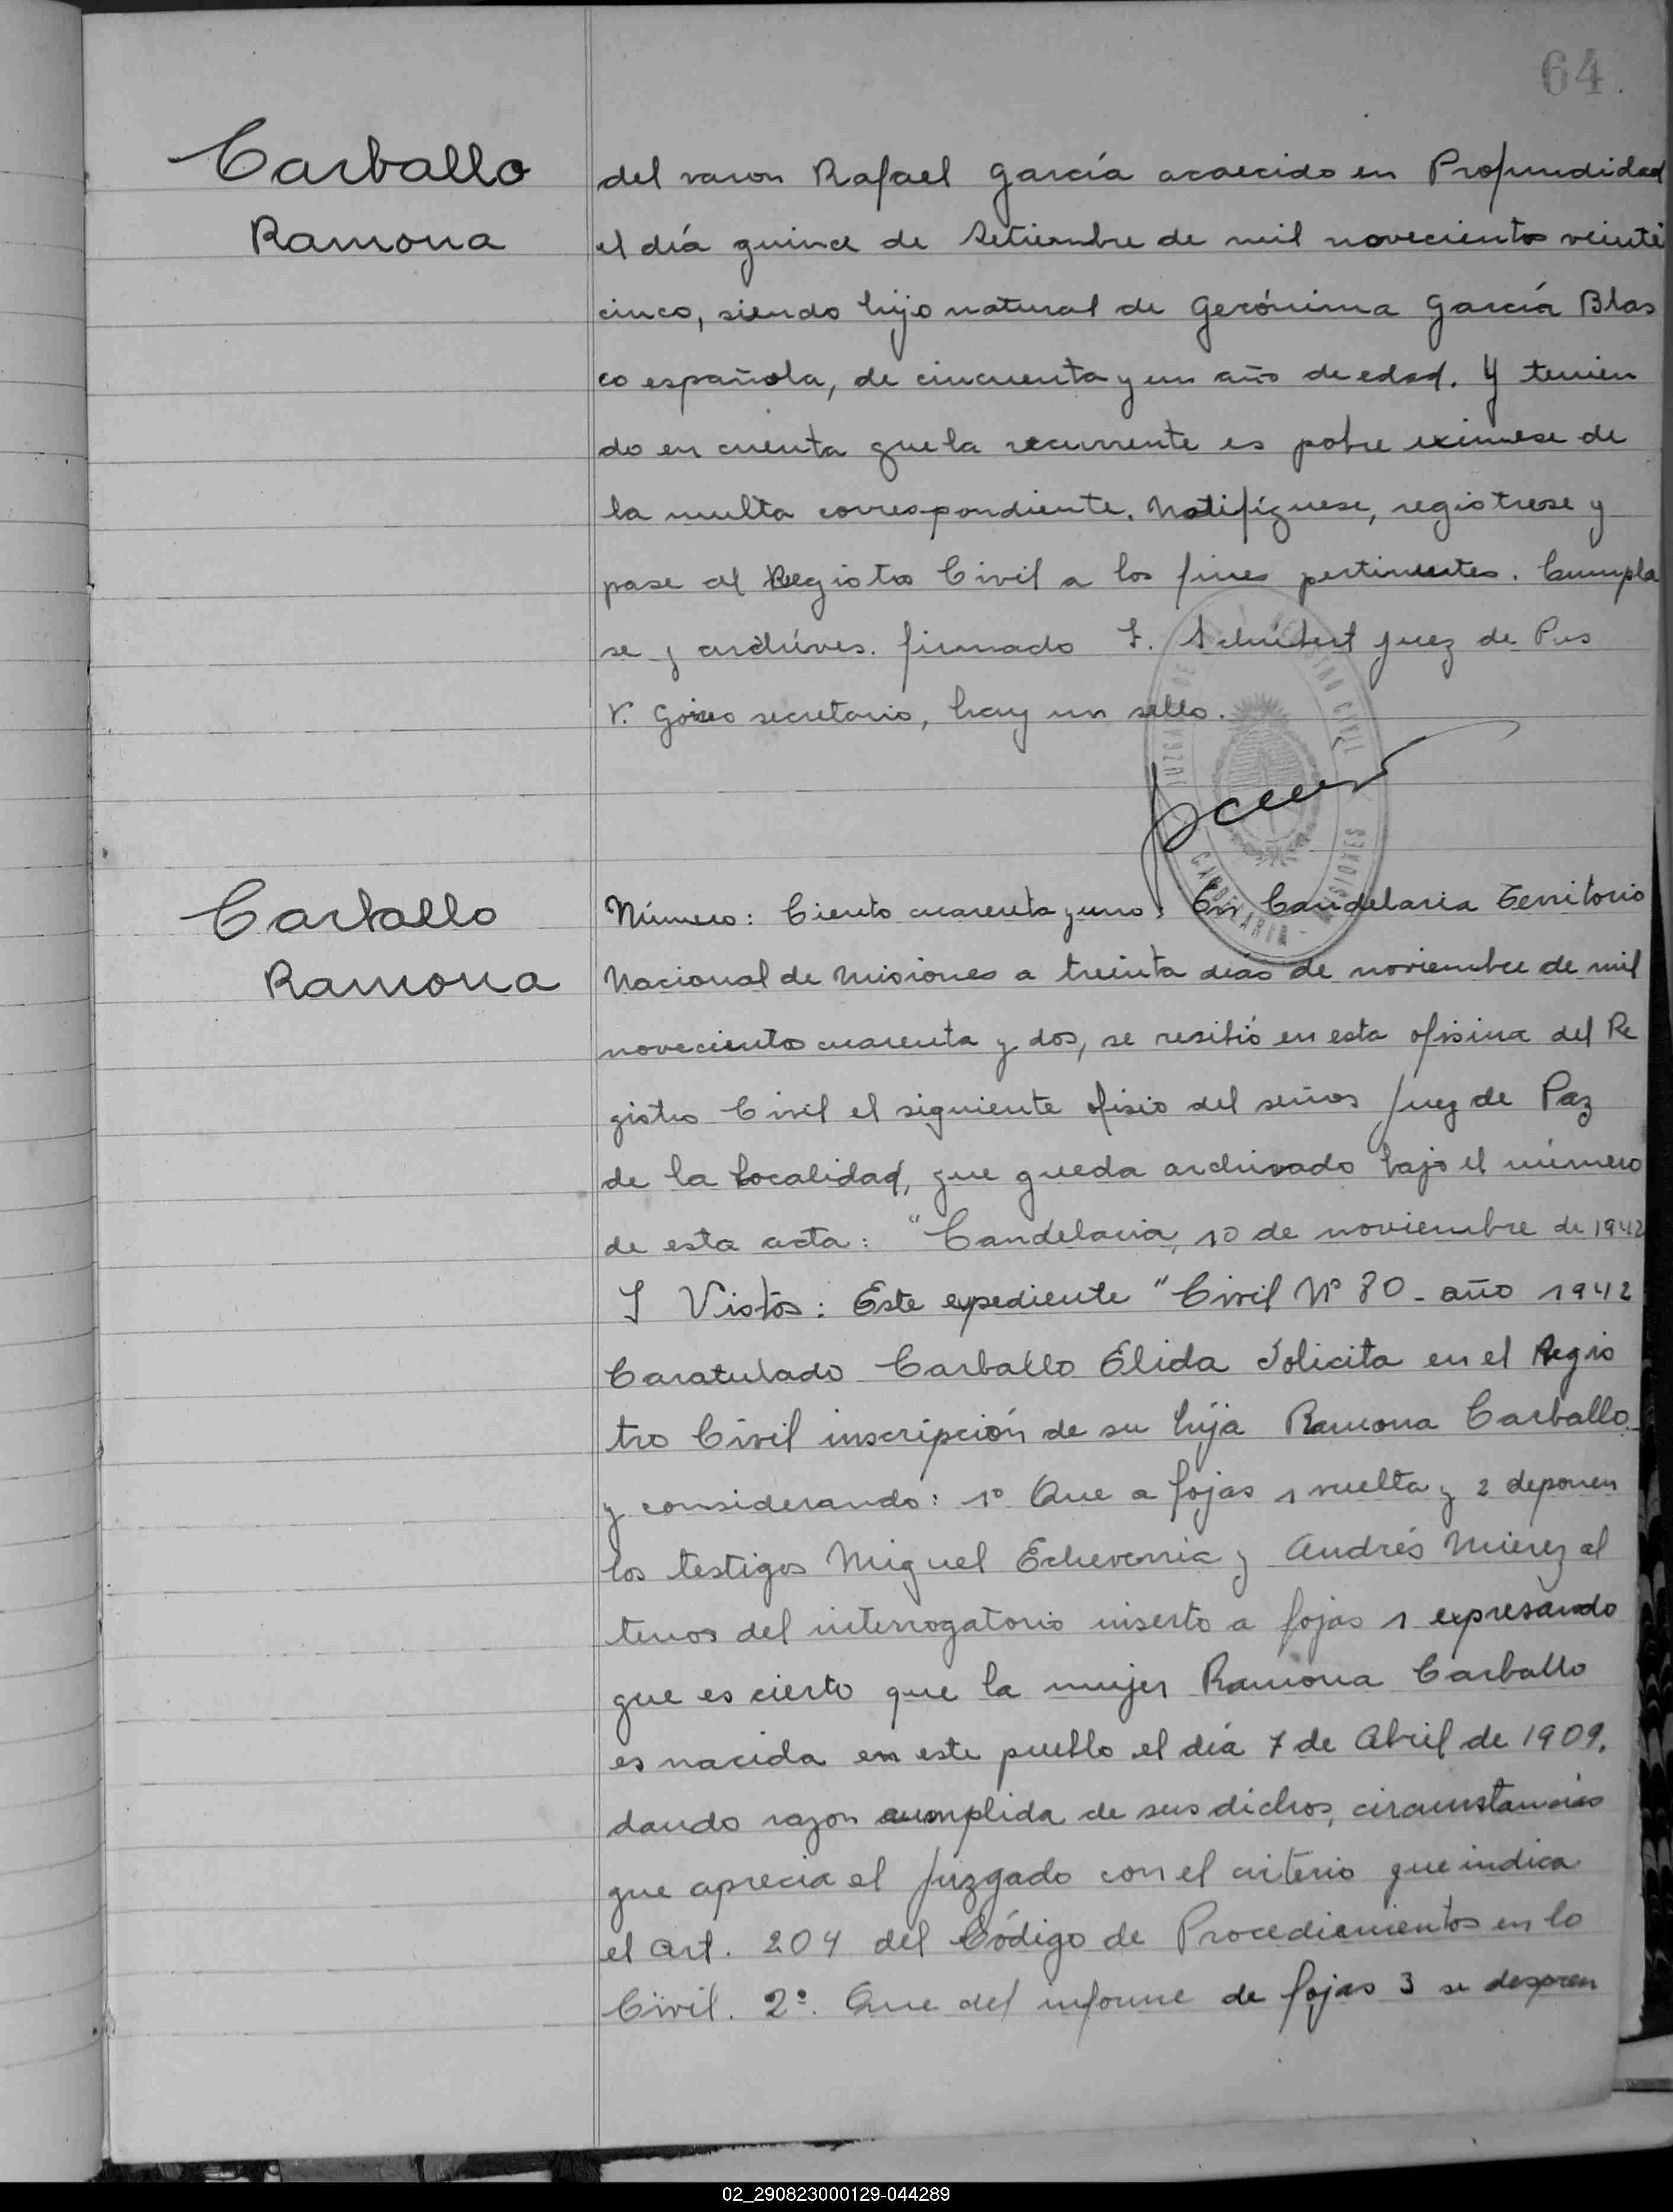 64.
Carballo
Ramona
del varon Rafael García acaecido en Profundidad
el día quince de Setiembre de mil novecientos veinti
cinco, siendo hijo natural de Gerónima García Blas
co española, de cincuenta y un año de edad. Y tenien
do en cuenta que la recurrente es pobre eximese de
la multa correspondiente. Notifíquese, registrese y
pase al Registro Civil a los fines pertinentes. Cumpla
se y archives. firmado juez de Pas
V. secretario, hay un sello.
REGISTRO CIVIL
CANDELARIA - MISIONES
Carballo
Ramona
Número: Ciento cuarenta y uno. En Candelaria Territorio
Nacional de Misiones a treinta días de noviembre de mil
novecientos cuarenta y dos, se resibió en esta ofisina del Re
gistro Civil el siguiente ofisio del señor Juez de Paz
de la localidad, que queda archivado bajo el número
de esta acta: "Candelaria, 10 de noviembre de 1942
Y Vistos: Este expediente "Civil Nº 80 - año 1942
Caratulado Carballo Elida Solicita en el Regis
tro Civil inscripción de su hija Ramona Carballo
y considerando: 1º Que a fojas 1 vuelta y 2 deponen
los testigos Miguel Echeverria y Andrés Mierez al
tenor del interrogatorio inserto a fojas 1 expresando
que es cierto que la mujer Ramona Carballo
es nacida en este pueblo el día 7 de Abril de 1909,
dando razon cumplida de sus dichos, circunstancias
que aprecia el Juzgado con el criterio que indica
el Art. 204 del Código de Procedimientos en lo
Civil. 2º. Que del informe de fojas 3 se despren
02_290823000129-044289